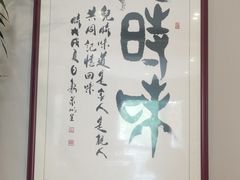 時味
兒時味道是家人是親人
共同記憶回味
時戊戌夏日